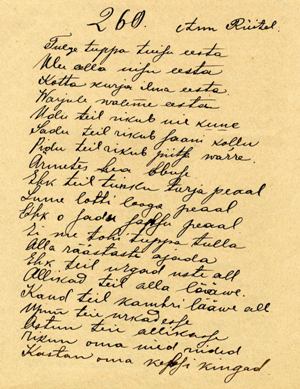 260. Ann Rüütel.
Tulge tuppa tuiju eesta
Ulu alla uiju eesta
Kotta kurja ilma eesta.
Warjule walime eesta
Udu teil rikub
Sadu teil rikub saani kollu
Pidu teil rikub warre.
Armetes hea
Ehk teil tursku turja peaal
Lume lotti laaga peaal
Ehk o sadu peaal
Ei me tohi tuppa tulla
Alla räästaste ajada
Ehk teil urgad uste all
Allikad teil alla lääwe.
Kaud teil kambri lääwe all
teie urkadesse
Astun teie allikasse
rikun oma uied riided
Kastan oma kingad